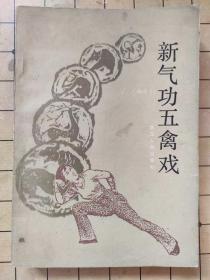 新气功五禽戏